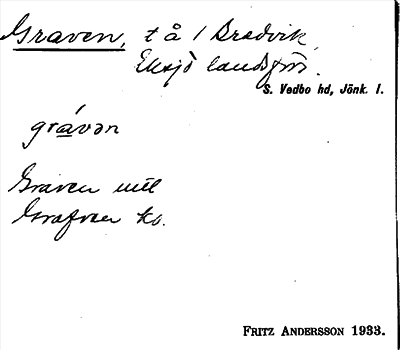 Graven, t å / Bredvik
Eksjö landsförs.
S. Vedbo hd, Jönk. l.
gravən
Graven
Grafven ks.
FRITZ ANDERSSON 1933.